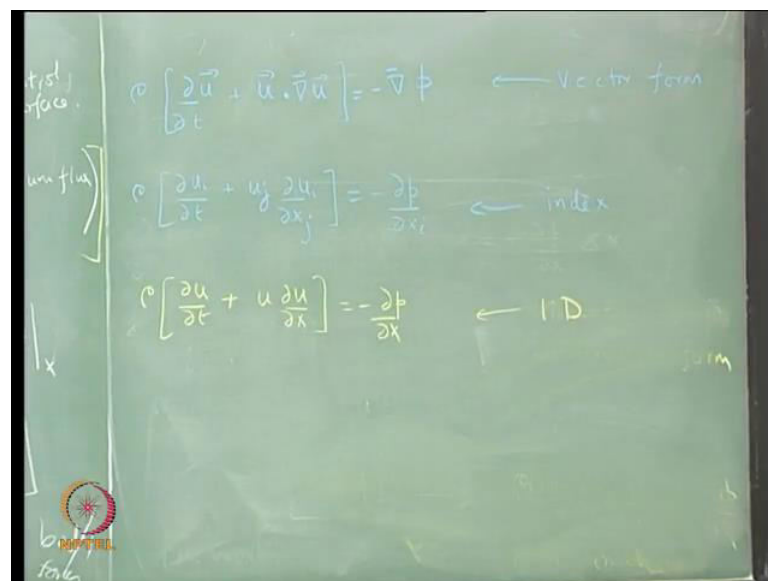 ρ [ ∂u⃗/∂t + u⃗ · ∇⃗ u⃗ ] = - ∇̄ p ← Vector form
ρ [ ∂uᵢ/∂t + uⱼ ∂uᵢ/∂xⱼ ] = - ∂p/∂xᵢ ← index
ρ [ ∂u/∂t + u ∂u/∂x ] = - ∂p/∂x ← 1D
um flux)
x
form
NPTEL